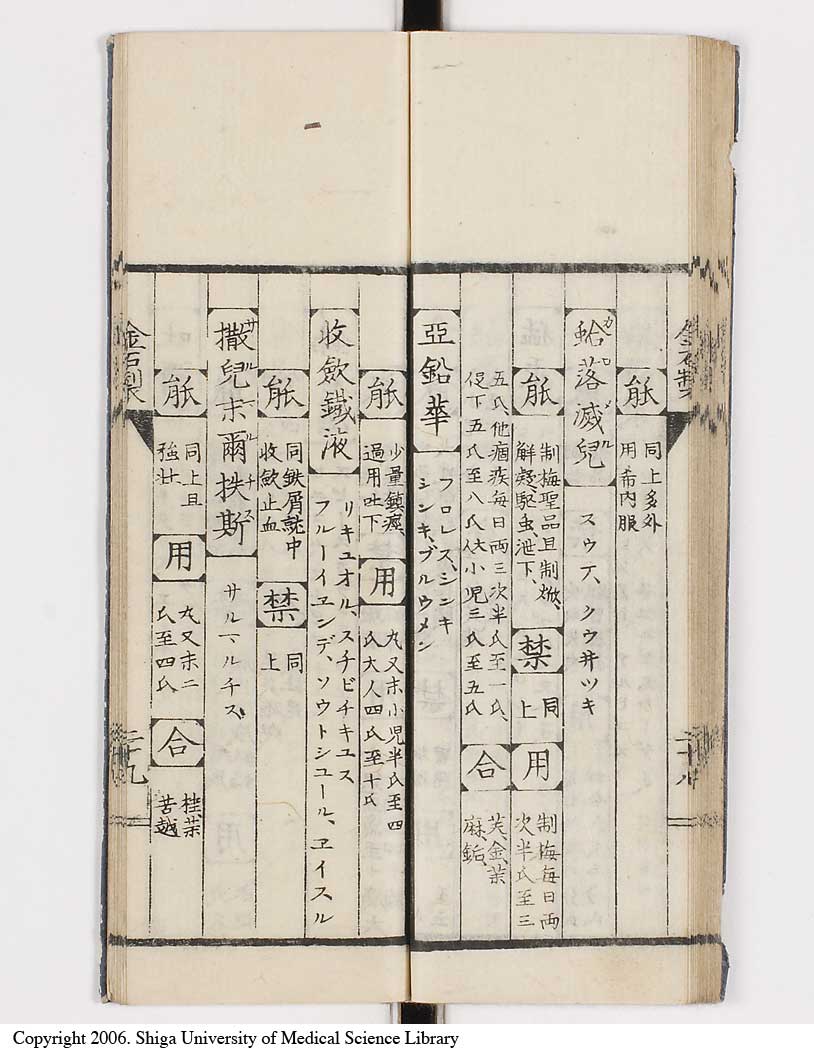 能 同上多外
用希内服
蛤落滅兒 スウテ、クウヰツキ
カロメル
能 制梅聖品且制焮、
解凝、駆虫、泄下、
禁 同
上
用 制梅毎日両
次半氏至三
五氏他痼疾毎日両三次半氏至一氏、
促下五氏至八氏伏小児三氏至五氏
合 芙、金、葉
麻、鉐、
亞鉛華 フロレス、シンキ
シンキ、ブルウメン
能 少量鎮痙、
過用吐下
用 丸又末小児半氏至四
氏大人四氏至十氏
收斂鐵液 リキュオル、スチピチキユス
フルーイヱンデ、ソウトシュール、ヱイスル
能 同鉄屑誌中
收斂止血
禁 同
上
撒兒末爾扶斯 サルマルチス
能 同上且
強壮
用 丸又末二
氏至四氏
合 桂、葉
苦、越
金石製
二十九
金石製
二十八
Copyright 2006. Shiga University of Medical Science Library